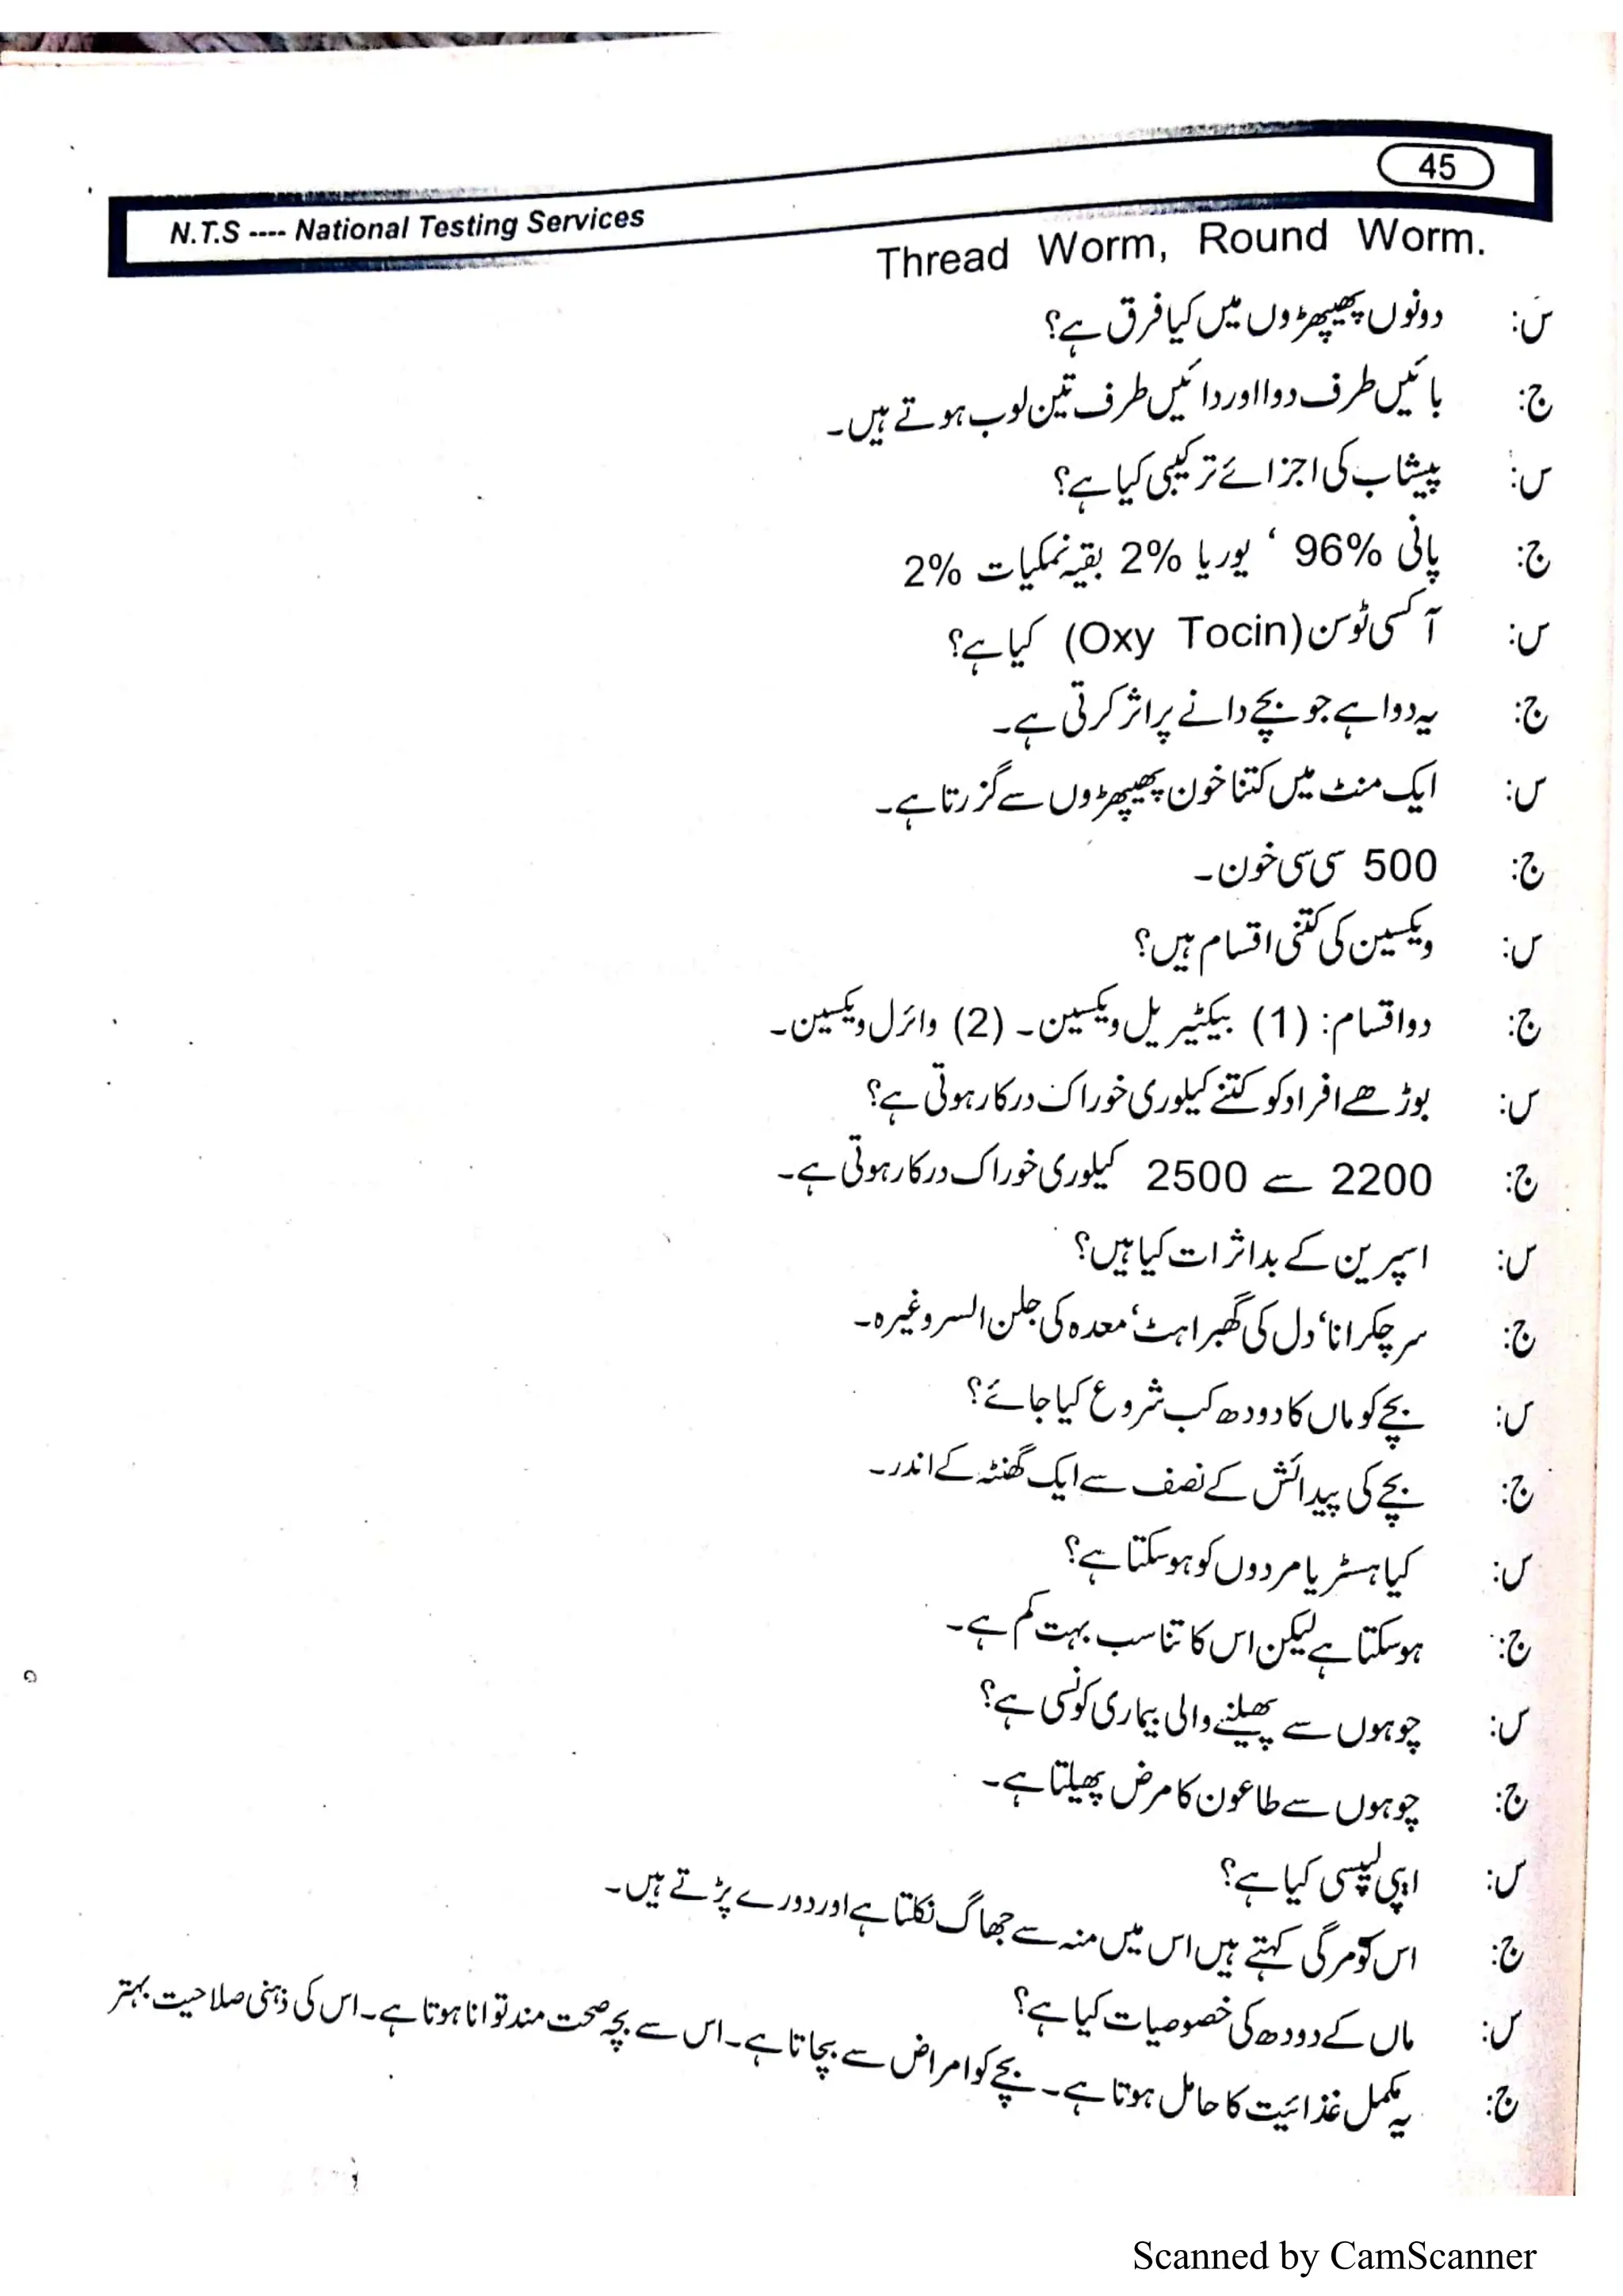 45
N.T.S ---- National Testing Services
Thread Worm, Round Worm.
س: دونوں پھیپھڑوں میں کیا فرق ہے؟
ج: بائیں طرف دو ااور دائیں طرف تین لوب ہوتے ہیں۔
س: پیشاب کی اجزائے ترکیبی کیا ہے؟
ج: پانی 96% ‘ یوریا 2% بقیہ نمکیات 2%
س: آکسی ٹوسن (Oxy Tocin) کیا ہے؟
ج: یہ دوا ہے جو بچے دانے پر اثر کرتی ہے۔
س: ایک منٹ میں کتنا خون پھیپھڑوں سے گزرتا ہے۔
ج: 500 سی سی خون۔
س: ویکسین کی کتنی اقسام ہیں؟
ج: دو اقسام: (1) بیکٹیریل ویکسین۔ (2) وائرل ویکسین۔
س: بوڑھے افراد کو کتنے کیلوری خوراک درکار ہوتی ہے؟
ج: 2200 سے 2500 کیلوری خوراک درکار ہوتی ہے۔
س: اسپرین کے بد اثرات کیا ہیں؟
ج: سر چکرانا‘ دل کی گھبراہٹ‘ معدہ کی جلن السر وغیرہ۔
س: بچے کو ماں کا دودھ کب شروع کیا جائے؟
ج: بچے کی پیدائش کے نصف سے ایک گھنٹہ کے اندر۔
س: کیا ہسٹریا مردوں کو ہو سکتا ہے؟
ج: ہو سکتا ہے لیکن اس کا تناسب بہت کم ہے۔
س: چوہوں سے پھیلنے والی بیماری کونسی ہے؟
ج: چوہوں سے طاعون کا مرض پھیلتا ہے۔
س: ایپی لیپسی کیا ہے؟
ج: اس کو مرگی کہتے ہیں اس میں منہ سے جھاگ نکلتا ہے اور دورے پڑتے ہیں۔
س: ماں کے دودھ کی خصوصیات کیا ہے؟
ج: یہ مکمل غذائیت کا حامل ہوتا ہے۔ بچے کو امراض سے بچاتا ہے۔ اس سے بچہ صحت مند توانا ہوتا ہے۔ اس کی ذہنی صلاحیت بہتر
Scanned by CamScanner